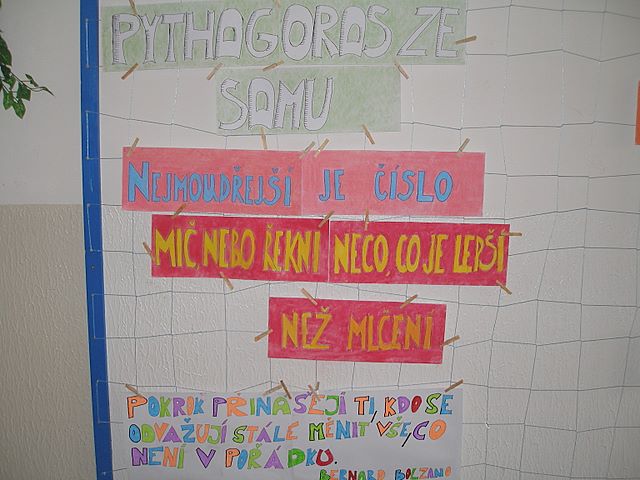 PYTHAGORAS ZE
SAMU
NEJMOUDŘEJŠÍ JE ČÍSLO
MIČ NEBO ŘEKNI NECO, CO JE LEPŠÍ
NEŽ MLČENÍ
POKROK PŘINÁŠEJÍ TI, KDO SE
ODVAŽUJÍ STÁLE MĚNIT VŠE, CO
NENÍ V POŘÁDKU.
BERNARD BOLZANO